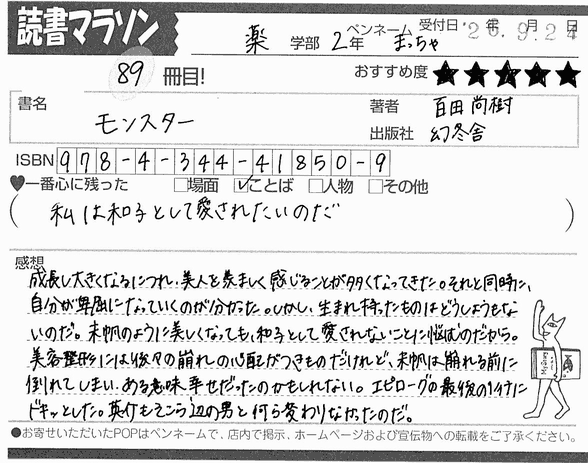 読書マラソン
薬 学部 2年 ペンネーム まっちゃ 受付日 '26年 9.月24日
89 冊目! おすすめ度 ★★★★★
書名 モンスター
著者 百田尚樹
出版社 幻冬舎
ISBN 978-4-344-41850-9
♥一番心に残った □場面 ☑ことば □人物 □その他
( 私は和子として愛されたいのだ )
感想
成長し大きくなるにつれ、美人を羨ましく感じることが多くなってきた。それと同時に、
自分が卑屈になっていくのが分かった。しかし、生まれ持ったものはどうしようもな
いのだ。未帆のように美しくなっても、和子として愛されないことに悩むのだから。
美容整形には後々の崩れの心配がつきものだけれど、未帆は崩れる前に
倒れてしまい、ある意味、幸せだったのかもしれない。エピローグの最後の1行に
ドキッとした。英介もそこら辺の男と何ら変わりなかったのだ。
●お寄せいただいたPOPはペンネームで、店内で掲示、ホームページおよび宣伝物への転載をご了承ください。